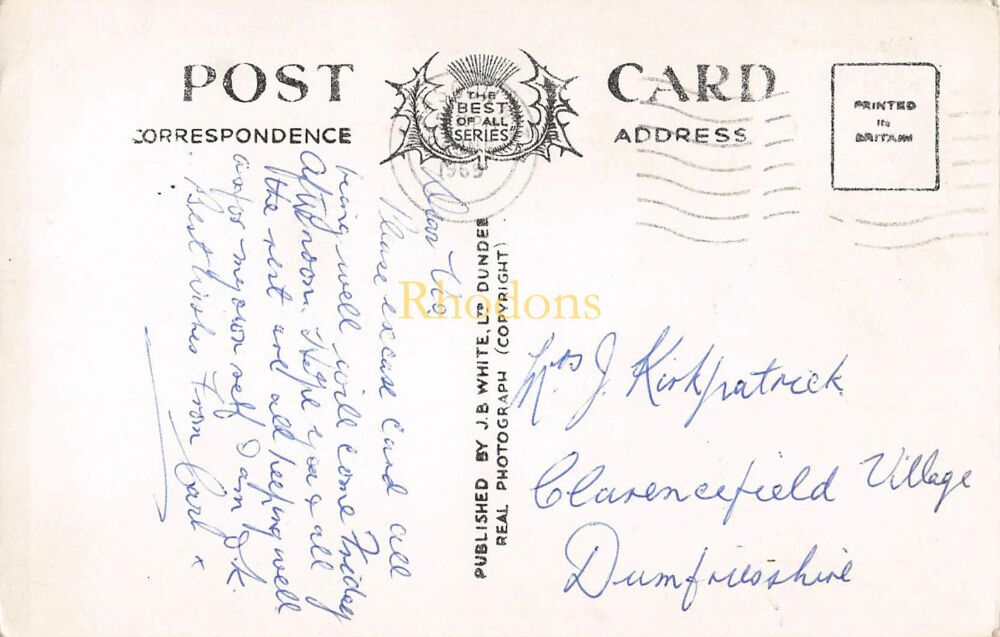 POST CARD
CORRESPONDENCE
ADDRESS
THE
BEST
OF ALL
SERIES
PRINTED
IN
BRITAIN
1965
PUBLISHED BY J.B WHITE, LTD DUNDEE
REAL PHOTOGRAPH (COPYRIGHT)
Rhodons
Dear
Please excuse card all
being well will come Friday
afternoon. Hope you & all
the rest are all keeping well
as for my own self I am O.K.
Best Wishes From Carl x
Mrs J. Kirkpatrick
Clarencefield Village
Dumfriesshire